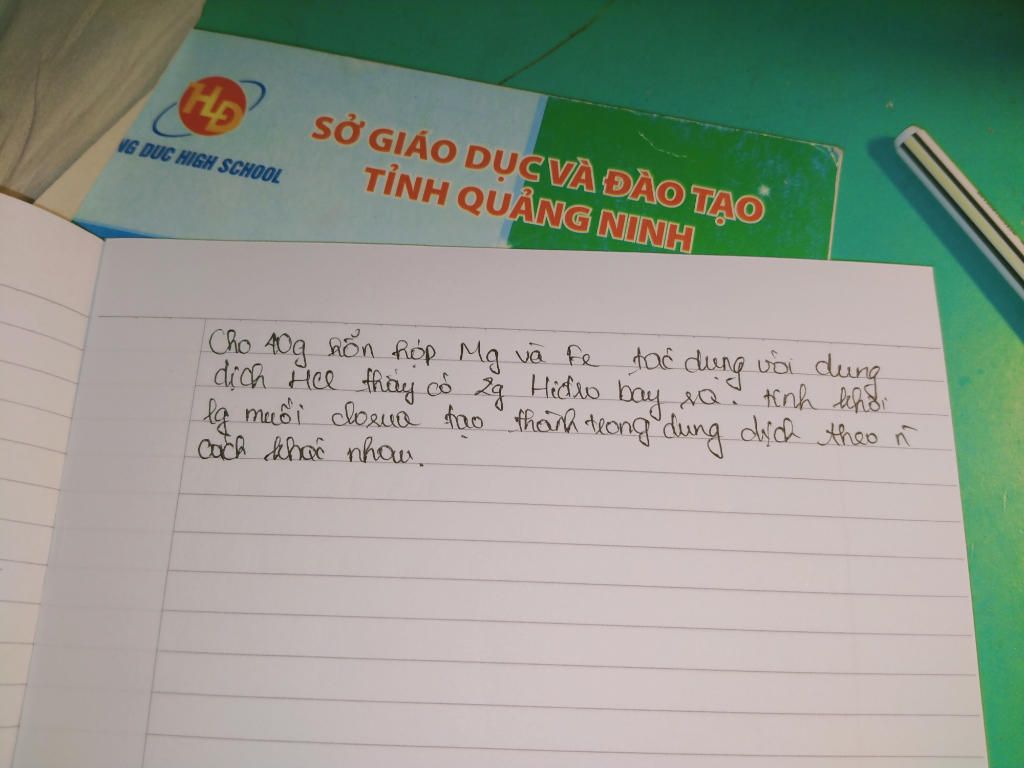 HĐ
NG DUC HIGH SCHOOL
SỞ GIÁO DỤC VÀ ĐÀO TẠO
TỈNH QUẢNG NINH
Cho 40g hỗn hợp Mg và Fe tác dụng với dung
dịch HCl thấy có 2g Hiđro bay ra. tính khối
lg muối clorua tạo thành trong dung dịch theo n
cách khác nhau.